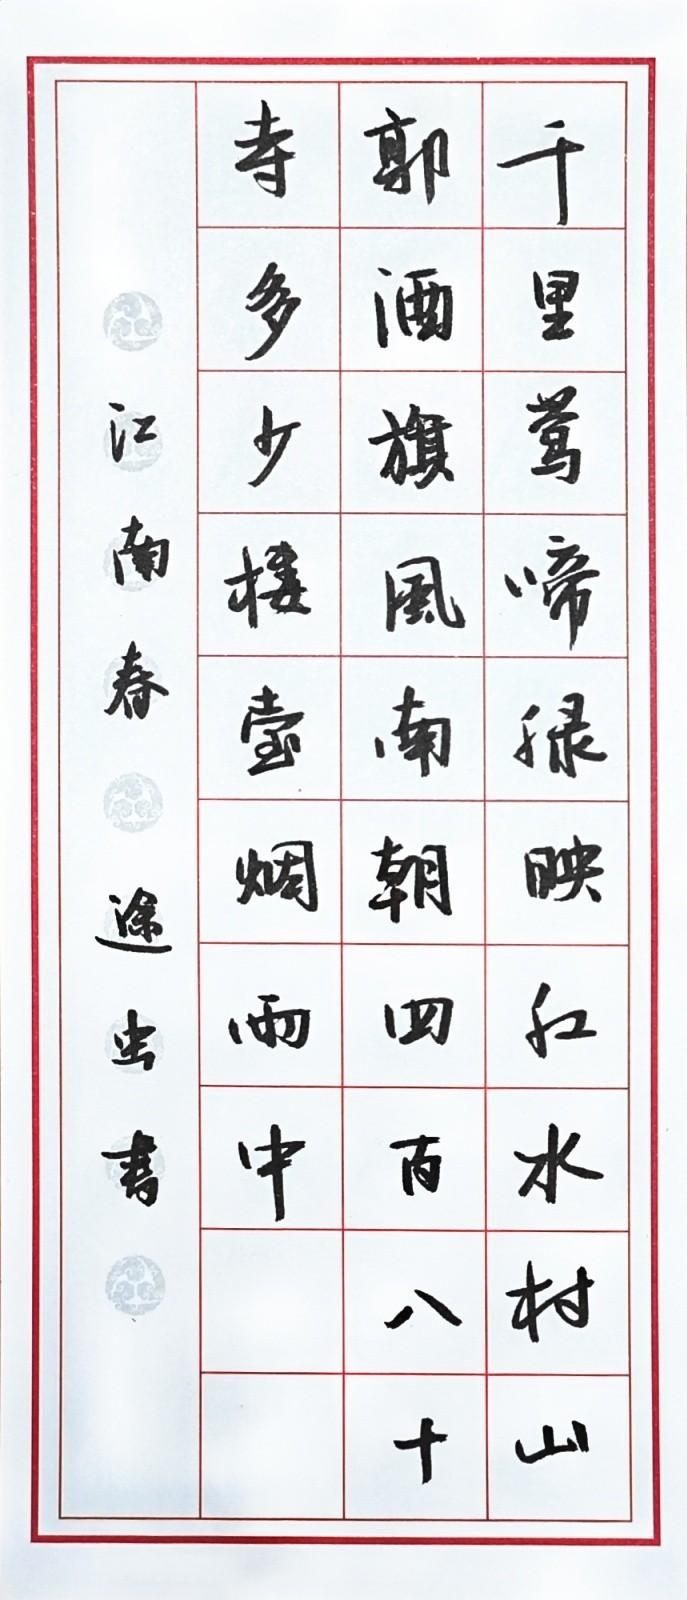 千里莺啼绿映红水村山
郭酒旗風南朝四百八十
寺多少楼臺烟雨中
江南春 途虫書